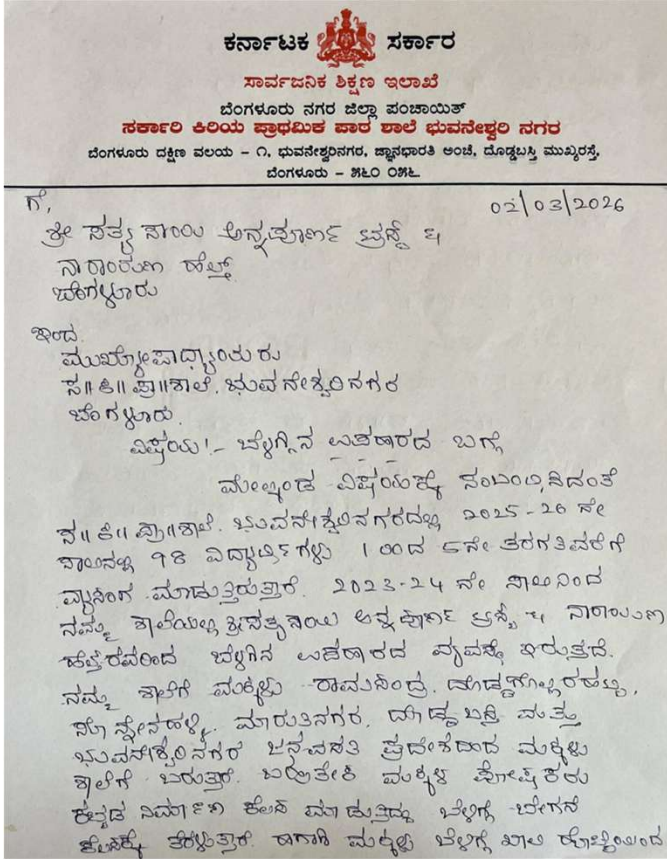 ಕರ್ನಾಟಕ ಸರ್ಕಾರ
ಸಾರ್ವಜನಿಕ ಶಿಕ್ಷಣ ಇಲಾಖೆ
ಬೆಂಗಳೂರು ನಗರ ಜಿಲ್ಲಾ ಪಂಚಾಯಿತ್
ಸರ್ಕಾರಿ ಕಿರಿಯ ಪ್ರಾಥಮಿಕ ಪಾಠ ಶಾಲೆ ಭುವನೇಶ್ವರಿ ನಗರ
ಬೆಂಗಳೂರು ದಕ್ಷಿಣ ವಲಯ – ೧, ಭುವನೇಶ್ವರಿನಗರ, ಜ್ಞಾನಭಾರತಿ ಅಂಚೆ, ದೊಡ್ಡಬಸ್ತಿ ಮುಖ್ಯರಸ್ತೆ,
ಬೆಂಗಳೂರು – ೫೬೦ ೦೫೬.
ಗೆ, 02/03/2026
ಶ್ರೀ ಸತ್ಯ ಸಾಯಿ ಅನ್ನಪೂರ್ಣ ಟ್ರಸ್ಟ್ &
ನಾರಾಯಣ ಹೆಲ್ತ್
ಬೆಂಗಳೂರು
ಇಂದ
ಮುಖ್ಯೋಪಾಧ್ಯಾಯರು
ಸ॥ಕಿ॥ಪ್ರಾ॥ಶಾಲೆ. ಭುವನೇಶ್ವರಿನಗರ
ಬೆಂಗಳೂರು.
ವಿಷಯ:- ಬೆಳಗ್ಗಿನ ಉಪಹಾರದ ಬಗ್ಗೆ
ಮೇಲ್ಕಂಡ ವಿಷಯಕ್ಕೆ ಸಂಬಂಧಿಸಿದಂತೆ
ಸ॥ಕಿ॥ಪ್ರಾ॥ಶಾಲೆ. ಭುವನೇಶ್ವರಿನಗರದಲ್ಲಿ 2025-26 ನೇ
ಸಾಲಿನಲ್ಲಿ 98 ವಿದ್ಯಾರ್ಥಿಗಳು 1 ರಿಂದ 5ನೇ ತರಗತಿವರೆಗೆ
ವ್ಯಾಸಂಗ ಮಾಡುತ್ತಿರುತ್ತಾರೆ. 2023-24 ನೇ ಸಾಲಿನಿಂದ
ನಮ್ಮ ಶಾಲೆಯಲ್ಲಿ ಶ್ರೀಸತ್ಯಸಾಯಿ ಅನ್ನಪೂರ್ಣ ಟ್ರಸ್ಟ್ & ನಾರಾಯಣ
ಹೆಲ್ತ್‌ರವರಿಂದ ಬೆಳಗಿನ ಉಪಹಾರದ ವ್ಯವಸ್ಥೆ ಇರುತ್ತದೆ.
ನಮ್ಮ ಶಾಲೆಗೆ ಮಕ್ಕಳು ರಾಮಸಂದ್ರ, ದೊಡ್ಡಗೊಲ್ಲರಹಟ್ಟಿ,
ಸೊನ್ನೇನಹಳ್ಳಿ, ಮಾರುತಿನಗರ, ದೊಡ್ಡಬಸ್ತಿ ಮತ್ತು
ಭುವನೇಶ್ವರಿನಗರ ಜನವಸತಿ ಪ್ರದೇಶದಿಂದ ಮಕ್ಕಳು
ಶಾಲೆಗೆ ಬರುತ್ತಾರೆ. ಬಹುತೇಕ ಮಕ್ಕಳ ಪೋಷಕರು
ಕಟ್ಟಡ ನಿರ್ಮಾಣ ಕೆಲಸ ಮಾಡುತ್ತಿದ್ದು ಬೆಳಿಗ್ಗೆ ಬೇಗನೆ
ಕೆಲಸಕ್ಕೆ ತೆರಳುತ್ತಾರೆ. ಹಾಗಾಗಿ ಮಕ್ಕಳು ಬೆಳಿಗ್ಗೆ ಖಾಲಿ ಹೊಟ್ಟೆಯಿಂದ